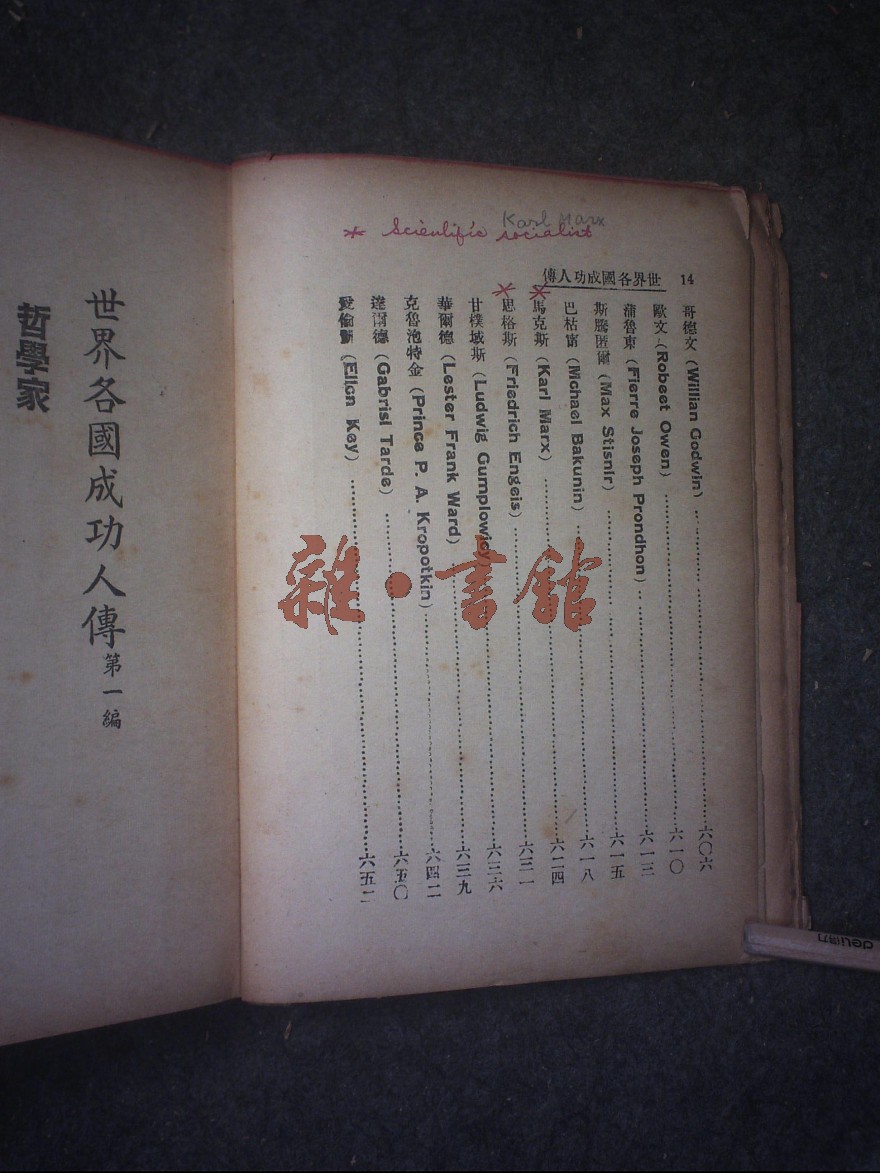 * Scientific socialist
Karl Marx
14 世界各國成功人傳
哥德文 (Willian Godwin)……六〇六
歐文 (Robeet Owen)……六一〇
蒲魯東 (Fierre Joseph Prondhon)……六一三
斯騰匿爾 (Max Stisnir)……六一五
巴枯甯 (Michael Bakunin)……六一八
* 馬克斯 (Karl Marx)……六二四
* 思格斯 (Friedrich Engeis)……六三一
甘樸域斯 (Ludwig Gumplowicy)……六三六
華爾德 (Lester Frank Ward)……六三九
克魯泡特金 (Prince P. A. Kropotkin)……六四二
達爾德 (Gabrisl Tarde)……六五〇
愛倫 (Ellen Key)……六五二
世界各國成功人傳 第一編
哲學家
雜·書館
deli得力